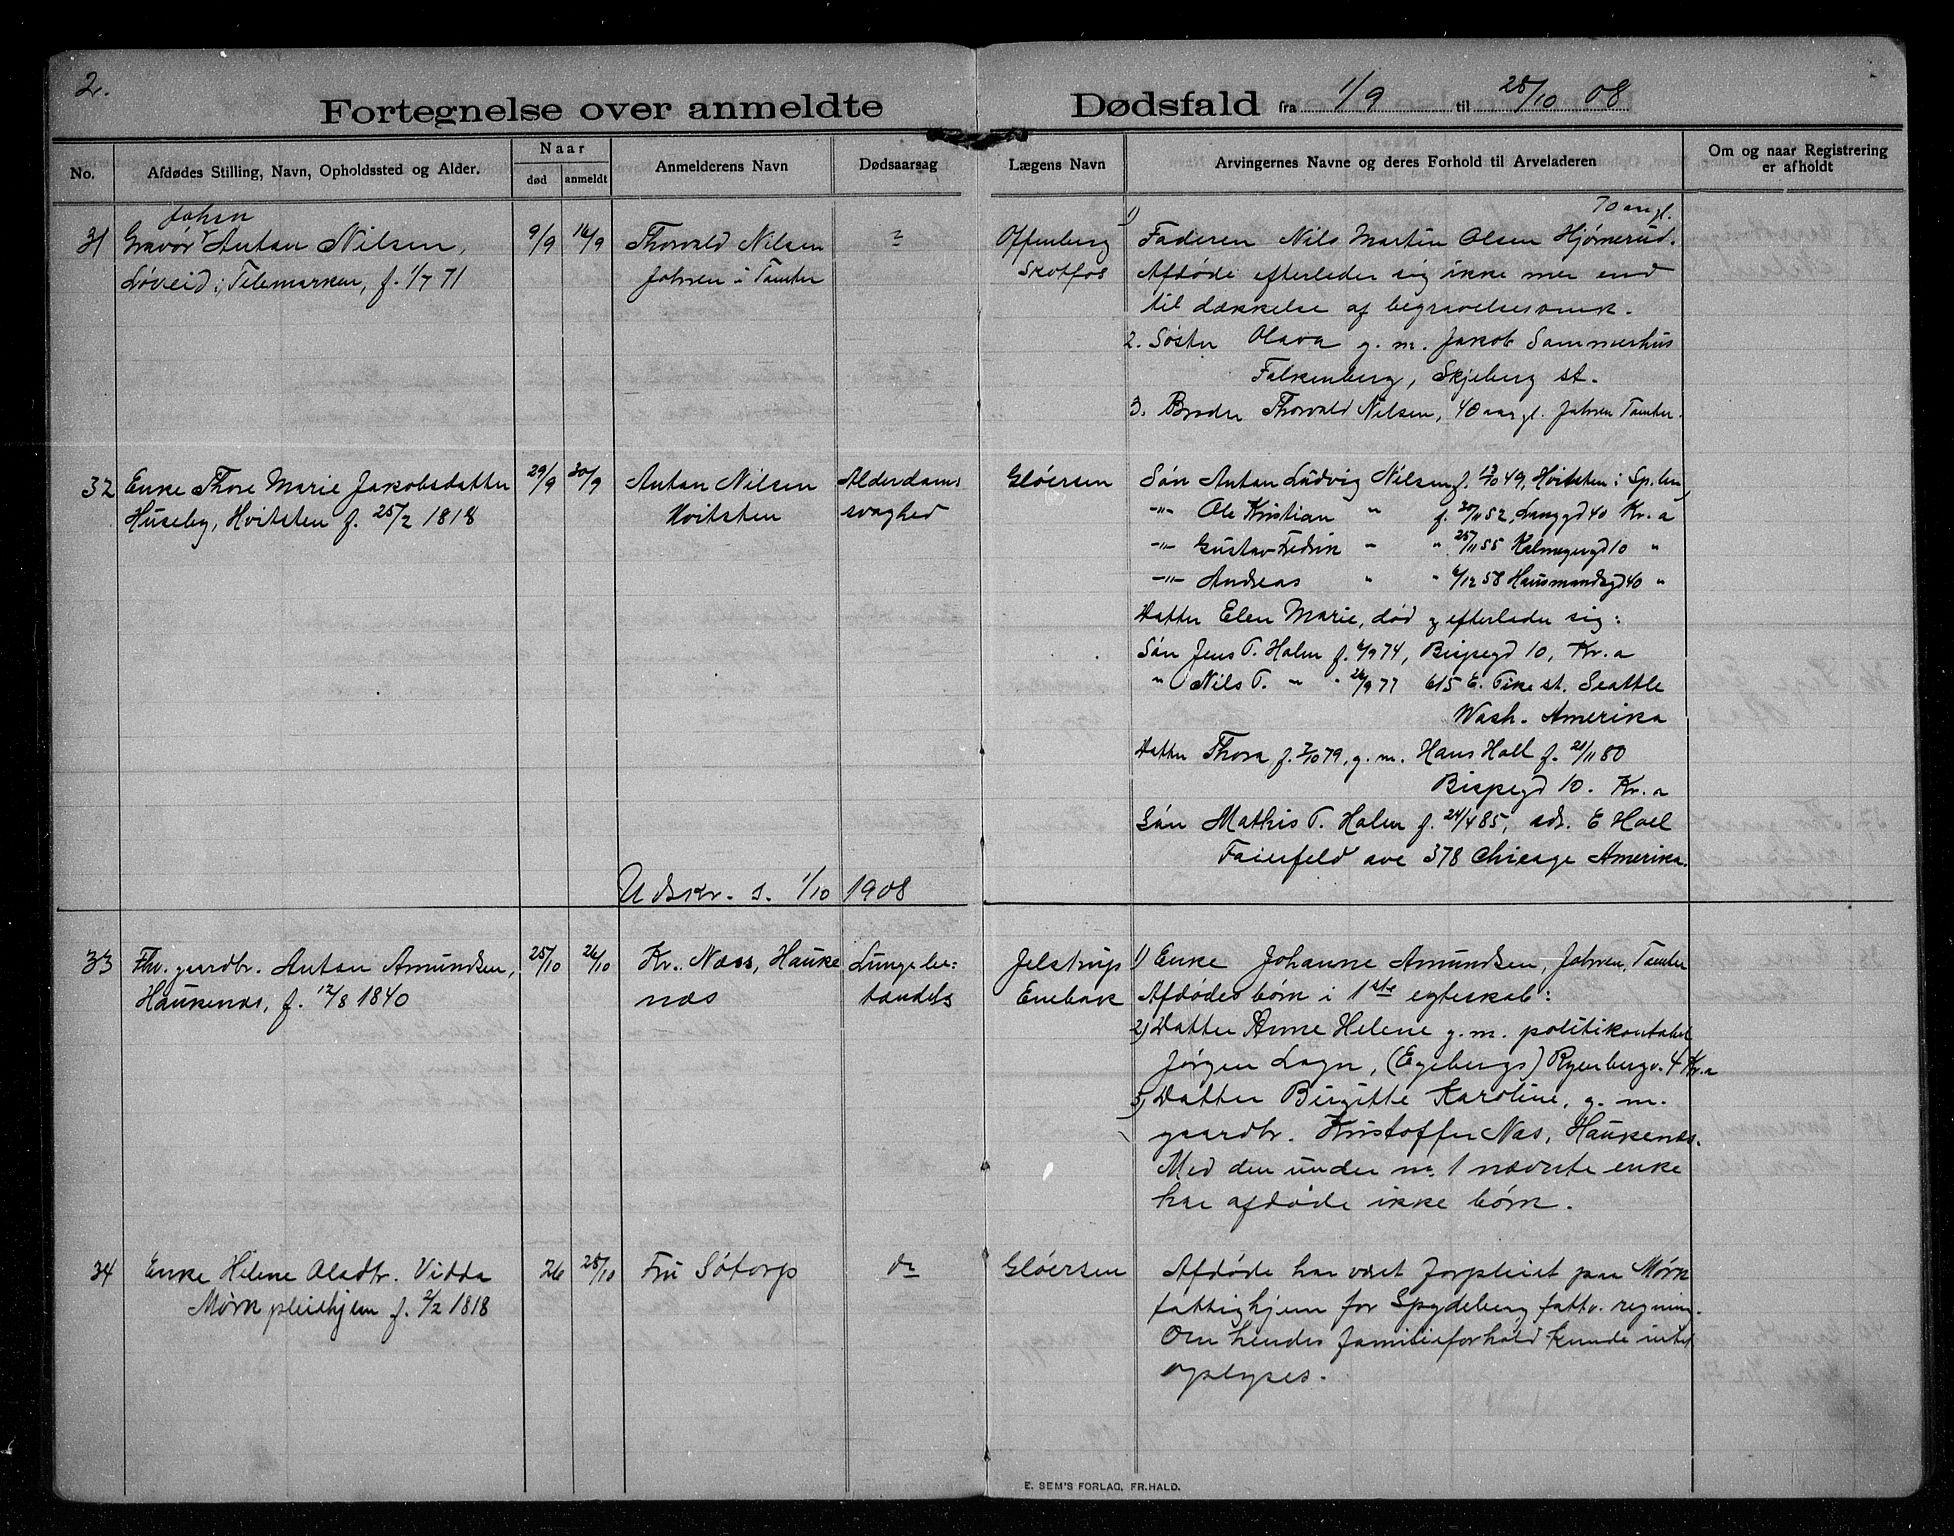 2.
Fortegnelse over anmeldte Dødsfald fra 1/9 til 28/10 08
No.
Afdødes Stilling, Navn, Opholdssted og Alder.
Naar
død
anmeldt
Anmelderens Navn
Dødsaarsag
Lægens Navn
Arvingernes Navne og deres Forhold til Arveladeren
Om og naar Registrering
er afholdt
31
Johan
Gravør Anton Nilsen,
Løveid i Telemarken, f. 1/7 71
9/9
16/9
Thorvald Nilsen
Jahren i Tomter
?
Offenberg
Skotfos
70 aar gl.
1) Faderen Nils Martin Olsen Hjørnerud.
Afdøde efterlader sig ikke mer end
til dækkelse af begravelsesomk.
2. Søster Olava g. m. Jakob Sommerhus
Falkenberg, Skjeberg st.
3. Broder Thorvald Nilsen, 40 aar gl. Jahren Tomter.
32
Enke Thore Marie Jakobsdatter
Huseby, Hvitsten f. 25/2 1818
29/9
30/9
Anton Nilsen
Hvitsten
Alderdoms
svaghed
Gløersen
Søn Anton Ludvig Nilsen f. 13/10 49, Hvitsten i Sp.len
-"- Ole Kristian " f. 20/11 52, Langgd 40 Kr.a
-"- Gustav Fredrik " " 25/11 55 Kalmeyergd 10 "
-"- Andreas " " 6/12 58 Hausmandsgd 40 "
Datter Elen Marie, død og efterlader sig:
Søn Jens T. Holm f. 6/9 74, Bispegd 10, Kr.a
" Nils T. " " 26/9 77 615 E. Pike st. Seattle
Wash. Amerika
Datter Thora, f. 7/10 79, g. m. Hans Hoel f. 21/11 80
Bispegd 10. Kr.a
Søn Mathis T. Holm f. 24/4 85, adr. E Hoel
Faierfeld ave 378 Chicago Amerika.
Udskr. s. 1/10 1908
33
Fhv. gaardbr. Anton Amundsen,
Haukenæs, f. 12/8 1840
25/10
26/10
Kr. Næss, Hauke
næs
Lungebe:
tændels
Jelstrup
Enebak
1) Enke Johanne Amundsen, Jahren, Tomter
Afdødes børn i 1ste egteskab:
2) Datter Anne Helene g. m. politikonstabel
Jørgen Lagn, (Egebergs) Ryenbergv. 4 Kr.a
3) Datter Birgitte Karoline, g. m.
gaardbr. Kristoffer Næs, Haukenæs.
Med den under no. 1 nævnte enke
har afdøde ikke børn.
34
Enke Helene Olasdtr. Vidda
Mørk pleiehjem f. 2/2 1818
26
28/10
Fru Søtorp
do
Gløersen
Afdøde har været forpleiet paa Mørk
fattighjem for Spydeberg fattv. regning.
Om hendes familieforhold kunde intet
oplyses.
E. SEM'S FORLAG, FR.HALD.